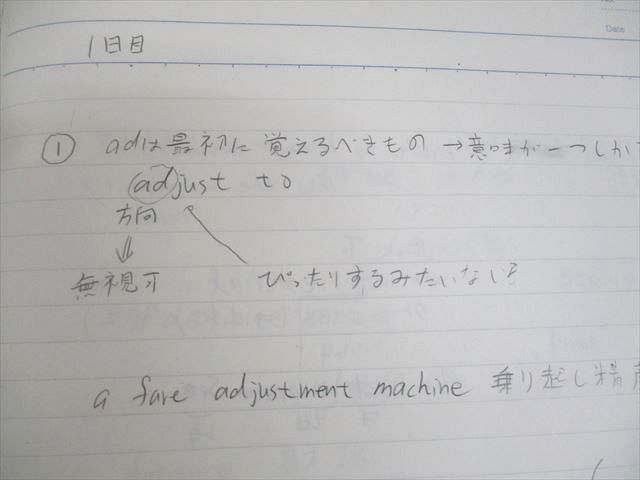 Date
1日目
① adは最初に覚えるべきもの →意味が一つしか
adjust to
方向
⇓
無視可
ぴったりするみたいない?
a fare adjustment machine 乗り起し精